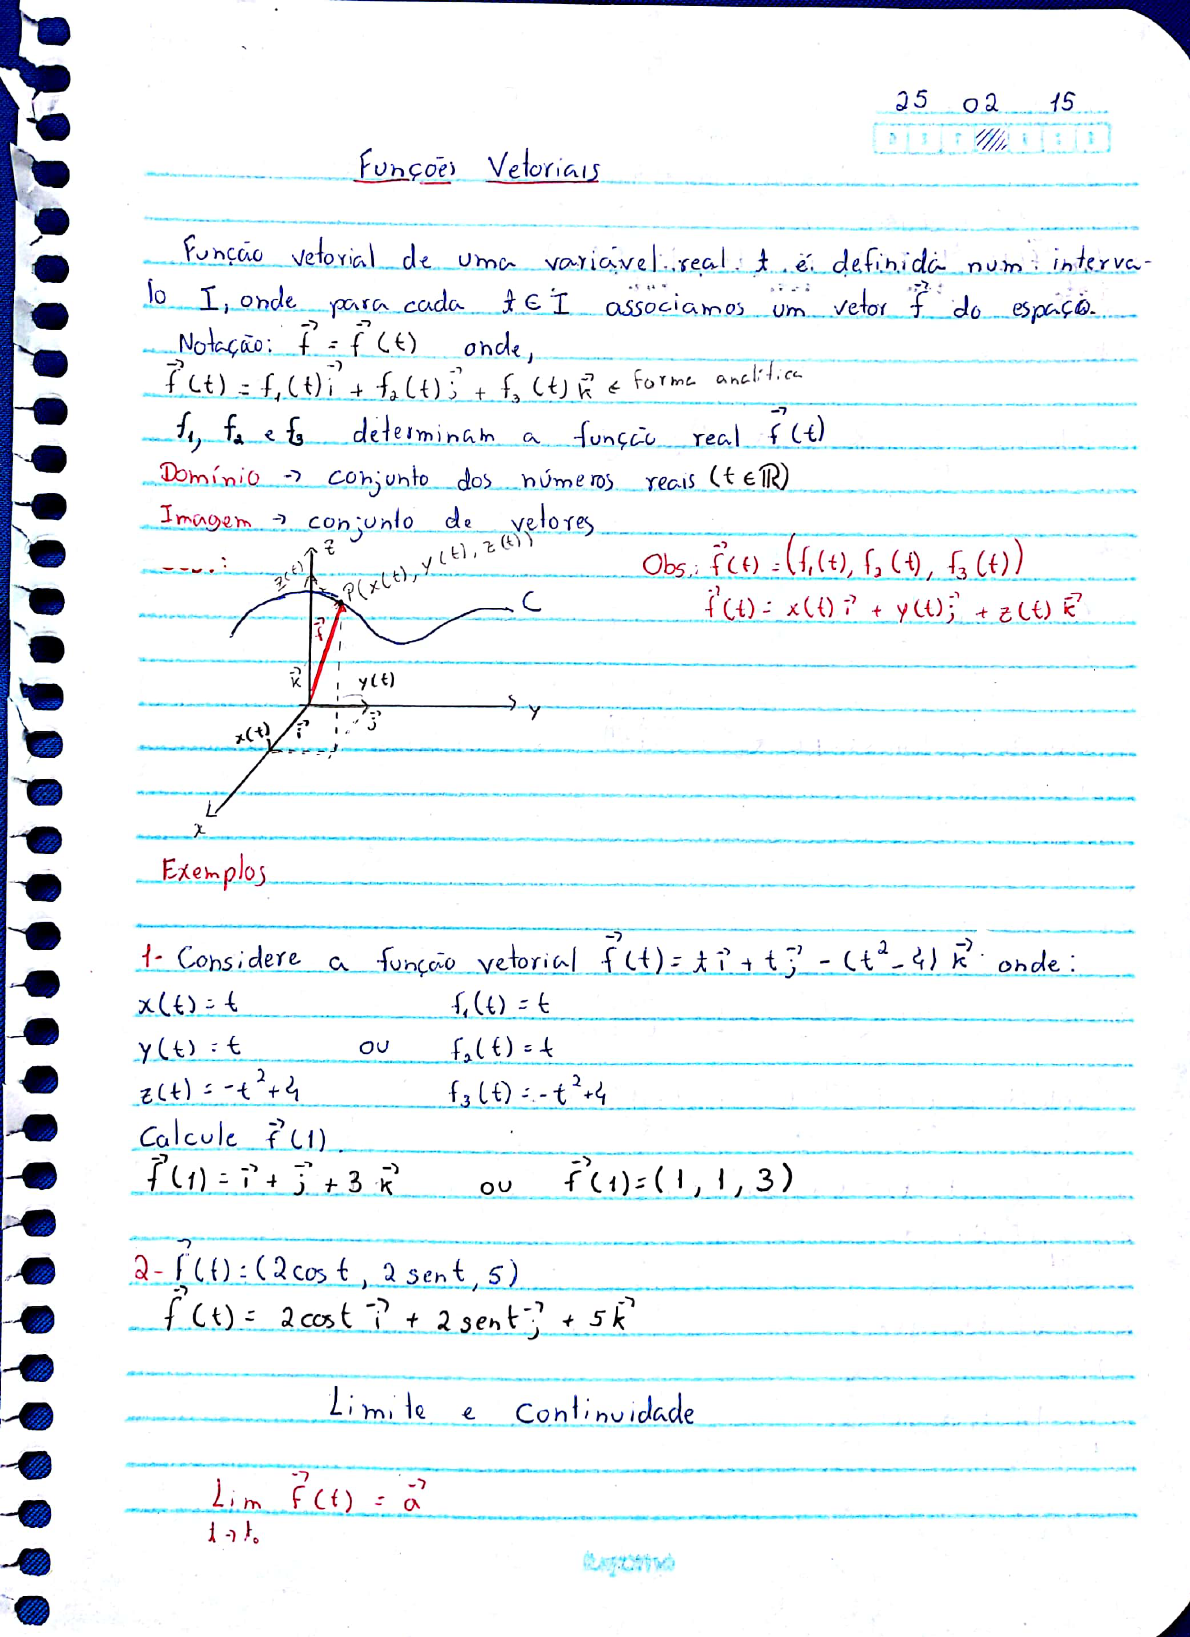 25 02 15
Funções Vetoriais
Função vetorial de uma variável real t é definida num interva-
lo I, onde para cada t ∈ I associamos um vetor f⃗ do espaço.
Notação: f⃗ = f⃗(t) onde,
f⃗(t) = f₁(t)i⃗ + f₂(t)j⃗ + f₃(t)k⃗ ← forma analítica
f₁, f₂ e f₃ determinam a função real f⃗(t)
Domínio → conjunto dos números reais (t ∈ ℝ)
Imagem → conjunto de vetores
z
z(t)
P(x(t), y(t), z(t))
C
f⃗
k⃗
y(t)
y
j⃗
x(t)
i⃗
x
Obs.: f⃗(t) = (f₁(t), f₂(t), f₃(t))
f⃗(t) = x(t)i⃗ + y(t)j⃗ + z(t)k⃗
Exemplos
1- Considere a função vetorial f⃗(t) = t i⃗ + t j⃗ - (t² - 4) k⃗ onde:
x(t) = t f₁(t) = t
y(t) = t ou f₂(t) = t
z(t) = -t² + 4 f₃(t) = -t² + 4
Calcule f⃗(1).
f⃗(1) = i⃗ + j⃗ + 3 k⃗ ou f⃗(1) = (1, 1, 3)
2- f⃗(t) = (2cos t, 2 sen t, 5)
f⃗(t) = 2cos t i⃗ + 2 sen t j⃗ + 5k⃗
Limite e Continuidade
Lim f⃗(t) = a⃗
t → t₀